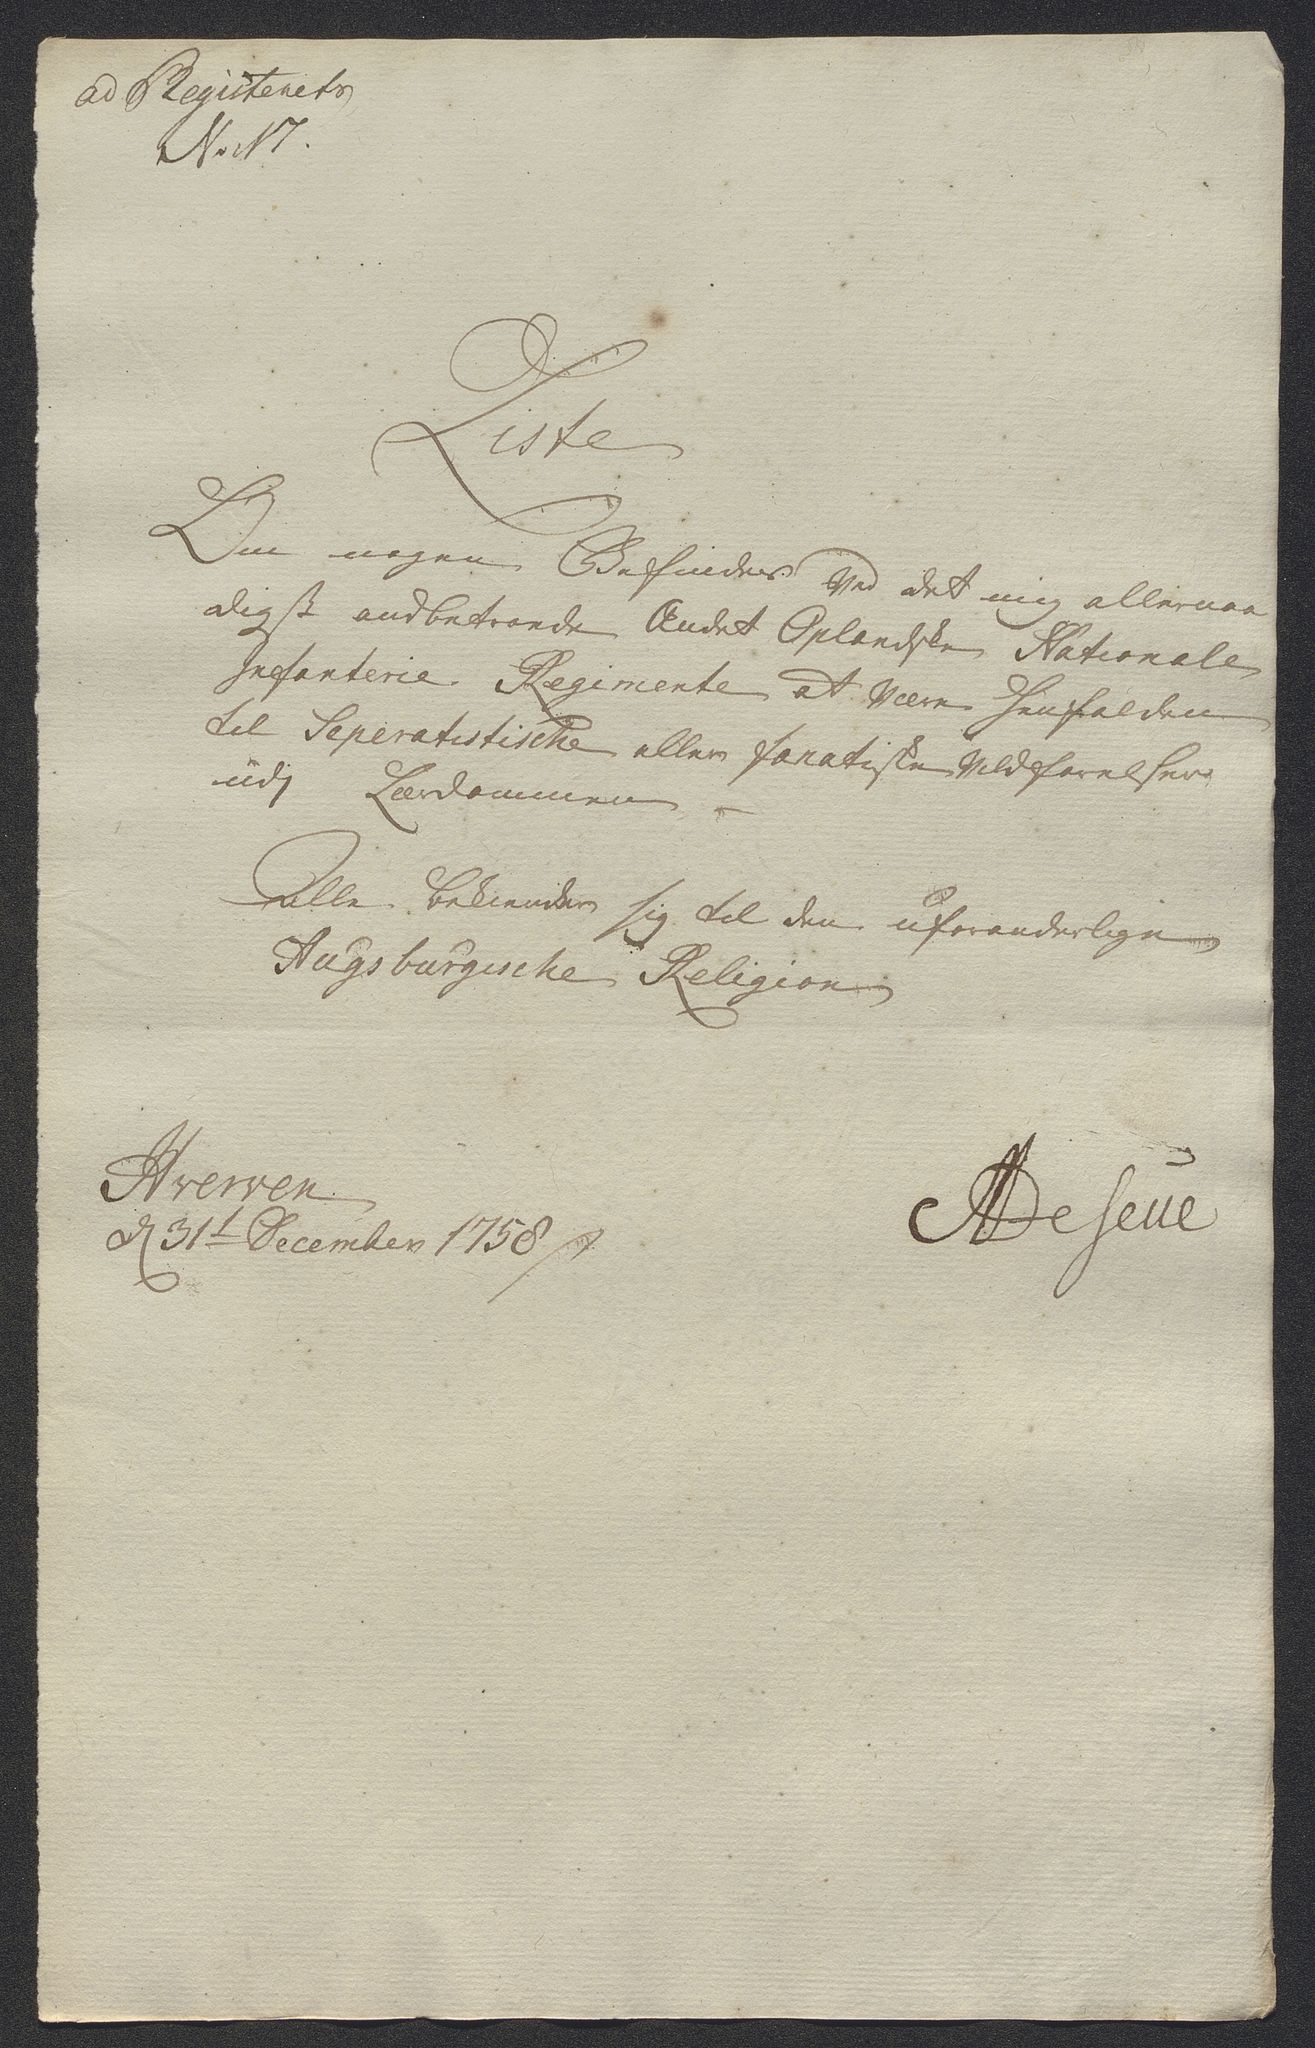 ad Registerets
No. 17.
Liste
Om nogen Befindes ved det mig allernaa
digst andbetroede Andet Oplandske Nationale
Infanterie Regimente at være henfalden
til Seperatistische eller fanatiske Vildfarelser
udj Lærdommen
Alle bekiender sig til den uforanderlige
Augsburgische Religion
Hverven
d 31t December 1758
De Seue